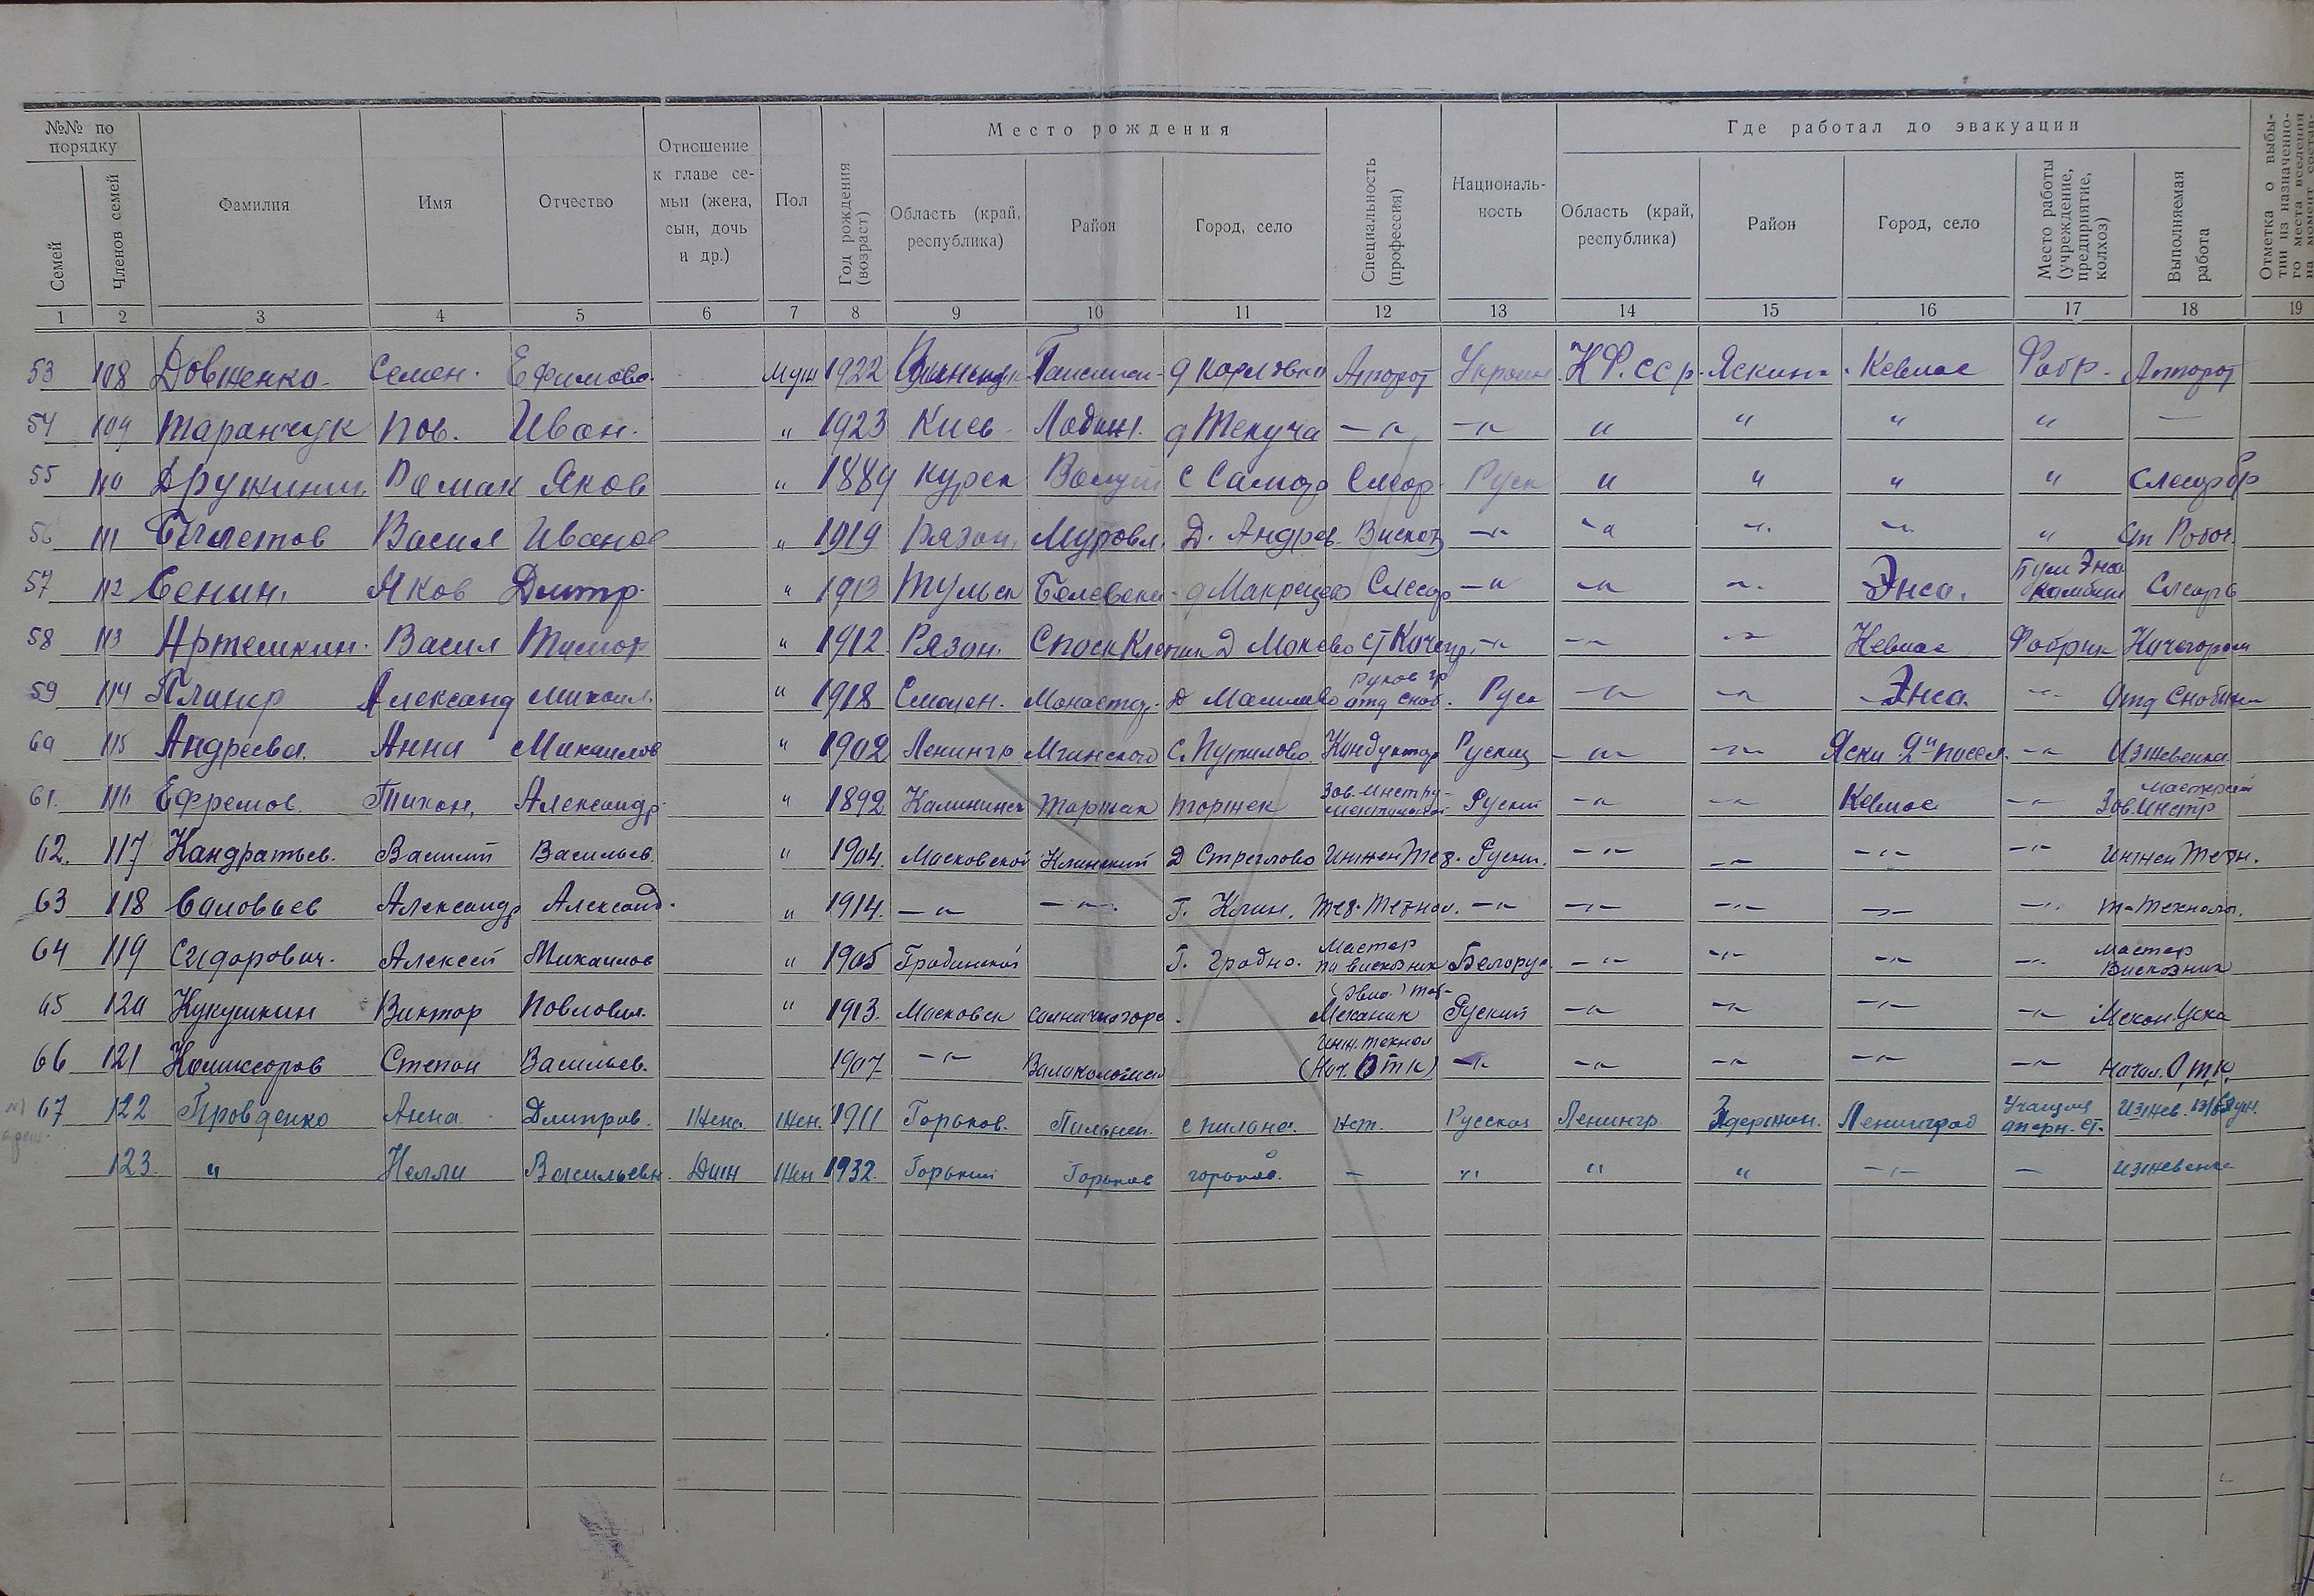 №№ по порядку
Семей
Членов семей
Фамилия
Имя
Отчество
Отношение к главе се-
мьи (жена,
сын, дочь
и др.)
Пол
Год рождения (возраст)
Место рождения
Область (край, республика)
Район
Город, село
Специальность (профессия)
Националь-
ность
Где работал до эвакуации
Область (край, республика)
Район
Город, село
Место работы (учреждение, предприятие, колхоз)
Выполняемая работа
Отметка о выбы-
тии из назначенно-
го места вселения
1 2 3 4 5 6 7 8 9 10 11 12 13 14 15 16 17 18 19
53 108 Довженко Семен. Ефимов. Муж 1922 д Карловка Аппарат Украин К.Ф.ССР. Яскин Кевиас Фабр. Аппарат
54 109 Таранчук Пав. Иван. " 1923 Киев д Текуча — " — " " " " " —
55 110 Дружинин Роман Яков " 1889 Курск Валуй с Самод Слесар Руск " " " " Слесар
56 111 Васил Иванов " 1919 Рязан. Муровл. Д. Андрев Вискоз — " — " — " — " — " Ст Рабоч.
57 112 Сенин. Яков Дмитр. " 1913 Тульск Белевск д Слесар — " — " — " Энсо. Энсо Слесарь
58 113 Артемкин. Васил Тимоф " 1912 Рязан. Спаск Клепик Д Маково — " — " — " Кевиас Фабрик Качегаром
59 114 Александ Михаил. " 1918 Смолен. Монастыр. д Руков гр отд снаб. Руск — " — " Энсо. — " Отд Снабжен
60 115 Андреева. Анна Михаилов " 1902 Ленингр Мгинского С. Путилово Кондуктор Руская — " — " Яски 2й посел. — " Иждевенка
61. 116 Ефремов. Тихон, Александр " 1892 Калининск Торжак Торжек Зав. Инстру-
ментальной Руский — " — " Кевиас — " Зав. Инстр Мастерской
62. 117 Кандратьев. Василий Васильев. " 1904. Московской Клинский Д Стреглово Инжен Тех. Руский. — " — " — " — " Инжен Техн.
63 118 Саловьев Александр Александ. " 1914. — " — " Г. Клин. Тех. Технол. — " — " — " — " — " Т-Технолог.
64 119 Сидорович. Алексей Михаилов " 1905 Гродинской Г. Гродно. Мастер
па вискозник Белорус. — " — " — " — " Мастер
Вискозник
65 120 Кукушкин Виктор Павлович. " 1913. Московск Солничногорс. Механик Руский — " — " — " — " Механ. Цеха
66 121 Комиссоров Степан Васильев. 1907 — " Валаколомск Инж. Технол
(Нач. ОТК) — " — " — " — " — " Начал. О.Т.К.
67 122 Провденко Анна Дмитров. Жена Жен. 1911 Горьков. Пильнен. с пилана. нет. Русская Ленингр. Ленинград Учащая Иждев.
123. " Нелли Васильевн. Доч Жен 1932. Горький Горьков горьков. — " " " — " — Иждевенка